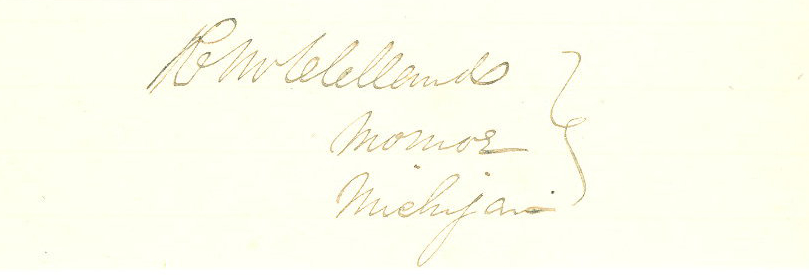 R McClelland
Monroe
Michigan